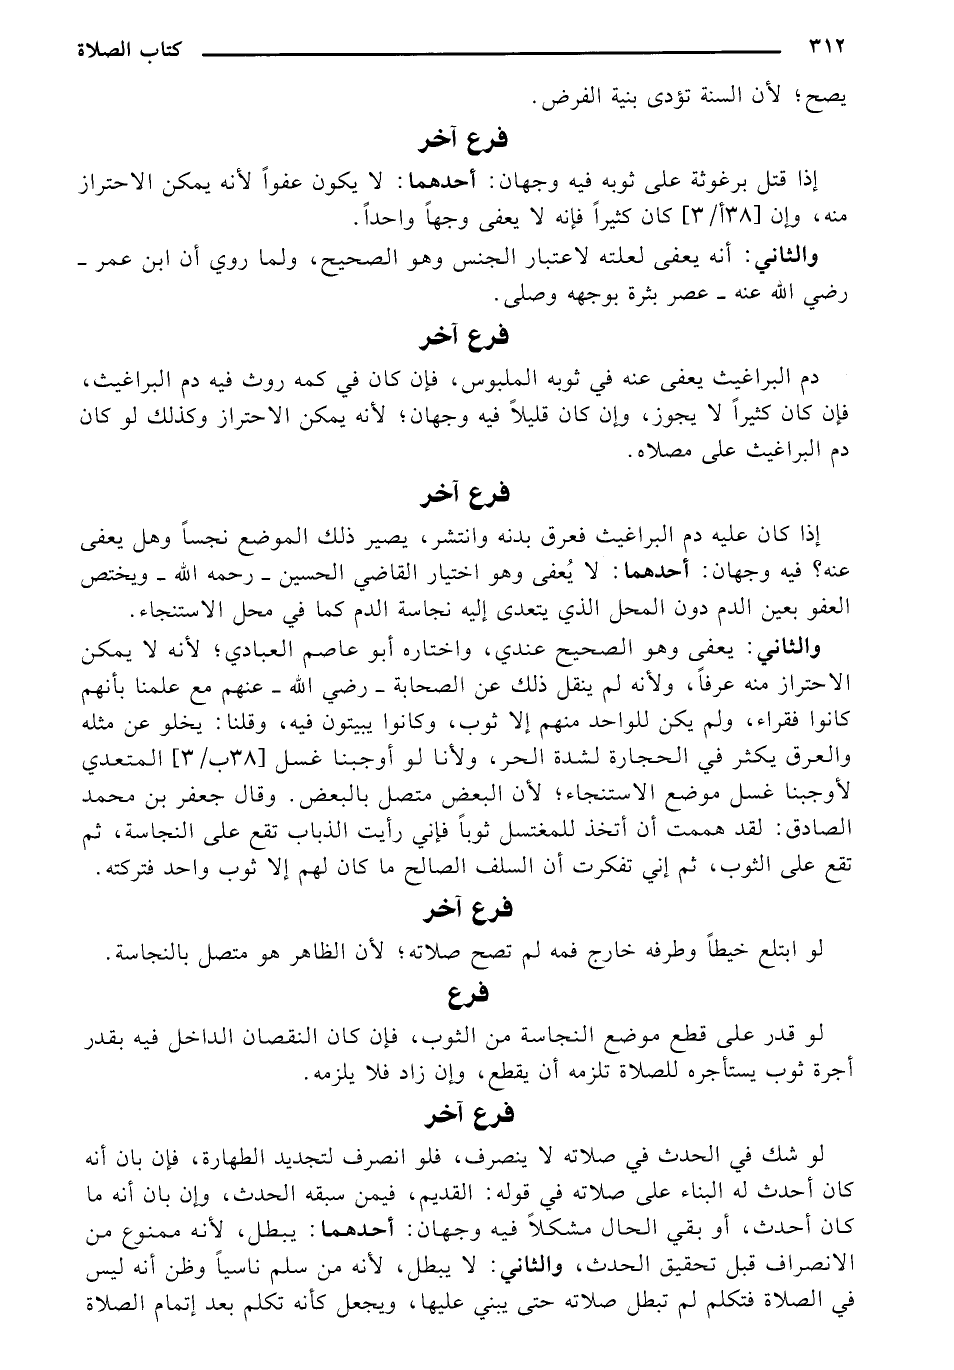 ٣١٢ كتاب الصلاة
يصح؛ لأن السنة تؤدى بنية الفرض.
فرع آخر
إذا قتل برغوثة على ثوبه فيه وجهان: أحدهما: لا يكون عفواً لأنه يمكن الاحتراز
منه، وإن [٣٨أ/ ٣] كان كثيراً فإنه لا يعفى وجهاً واحداً.
والثاني: أنه يعفى لعلته لاعتبار الجنس وهو الصحيح، ولما روي أن ابن عمر -
رضي الله عنه - عصر بثرة بوجهه وصلى.
فرع آخر
دم البراغيث يعفى عنه في ثوبه الملبوس، فإن كان في كمه روث فيه دم البراغيث،
فإن كان كثيراً لا يجوز، وإن كان قليلاً فيه وجهان؛ لأنه يمكن الاحتراز وكذلك لو كان
دم البراغيث على مصلاه.
فرع آخر
إذا كان عليه دم البراغيث فعرق بدنه وانتشر، يصير ذلك الموضع نجساً وهل يعفى
عنه؟ فيه وجهان: أحدهما: لا يُعفى وهو اختيار القاضي الحسين - رحمه الله - ويختص
العفو بعين الدم دون المحل الذي يتعدى إليه نجاسة الدم كما في محل الاستنجاء.
والثاني: يعفى وهو الصحيح عندي، واختاره أبو عاصم العبادي؛ لأنه لا يمكن
الاحتراز منه عرفاً، ولأنه لم ينقل ذلك عن الصحابة - رضي الله - عنهم مع علمنا بأنهم
كانوا فقراء، ولم يكن للواحد منهم إلا ثوب، وكانوا يبيتون فيه، وقلنا: يخلو عن مثله
والعرق يكثر في الحجارة لشدة الحر، ولأنا لو أوجبنا غسل [٣٨ب/ ٣] المتعدي
لأوجبنا غسل موضع الاستنجاء؛ لأن البعض متصل بالبعض. وقال جعفر بن محمد
الصادق: لقد هممت أن أتخذ للمغتسل ثوباً فإني رأيت الذباب تقع على النجاسة، ثم
تقع على الثوب، ثم إني تفكرت أن السلف الصالح ما كان لهم إلا ثوب واحد فتركته.
فرع آخر
لو ابتلع خيطاً وطرفه خارج فمه لم تصح صلاته؛ لأن الظاهر هو متصل بالنجاسة.
فرع
لو قدر على قطع موضع النجاسة من الثوب، فإن كان النقصان الداخل فيه بقدر
أجرة ثوب يستأجره للصلاة تلزمه أن يقطع، وإن زاد فلا يلزمه.
فرع آخر
لو شك في الحدث في صلاته لا ينصرف، فلو انصرف لتجديد الطهارة، فإن بان أنه
كان أحدث له البناء على صلاته في قوله: القديم، فيمن سبقه الحدث، وإن بان أنه ما
كان أحدث، أو بقي الحال مشكلاً فيه وجهان: أحدهما: يبطل، لأنه ممنوع من
الانصراف قبل تحقيق الحدث، والثاني: لا يبطل، لأنه من سلم ناسياً وظن أنه ليس
في الصلاة فتكلم لم تبطل صلاته حتى يبني عليها، ويجعل كأنه تكلم بعد إتمام الصلاة